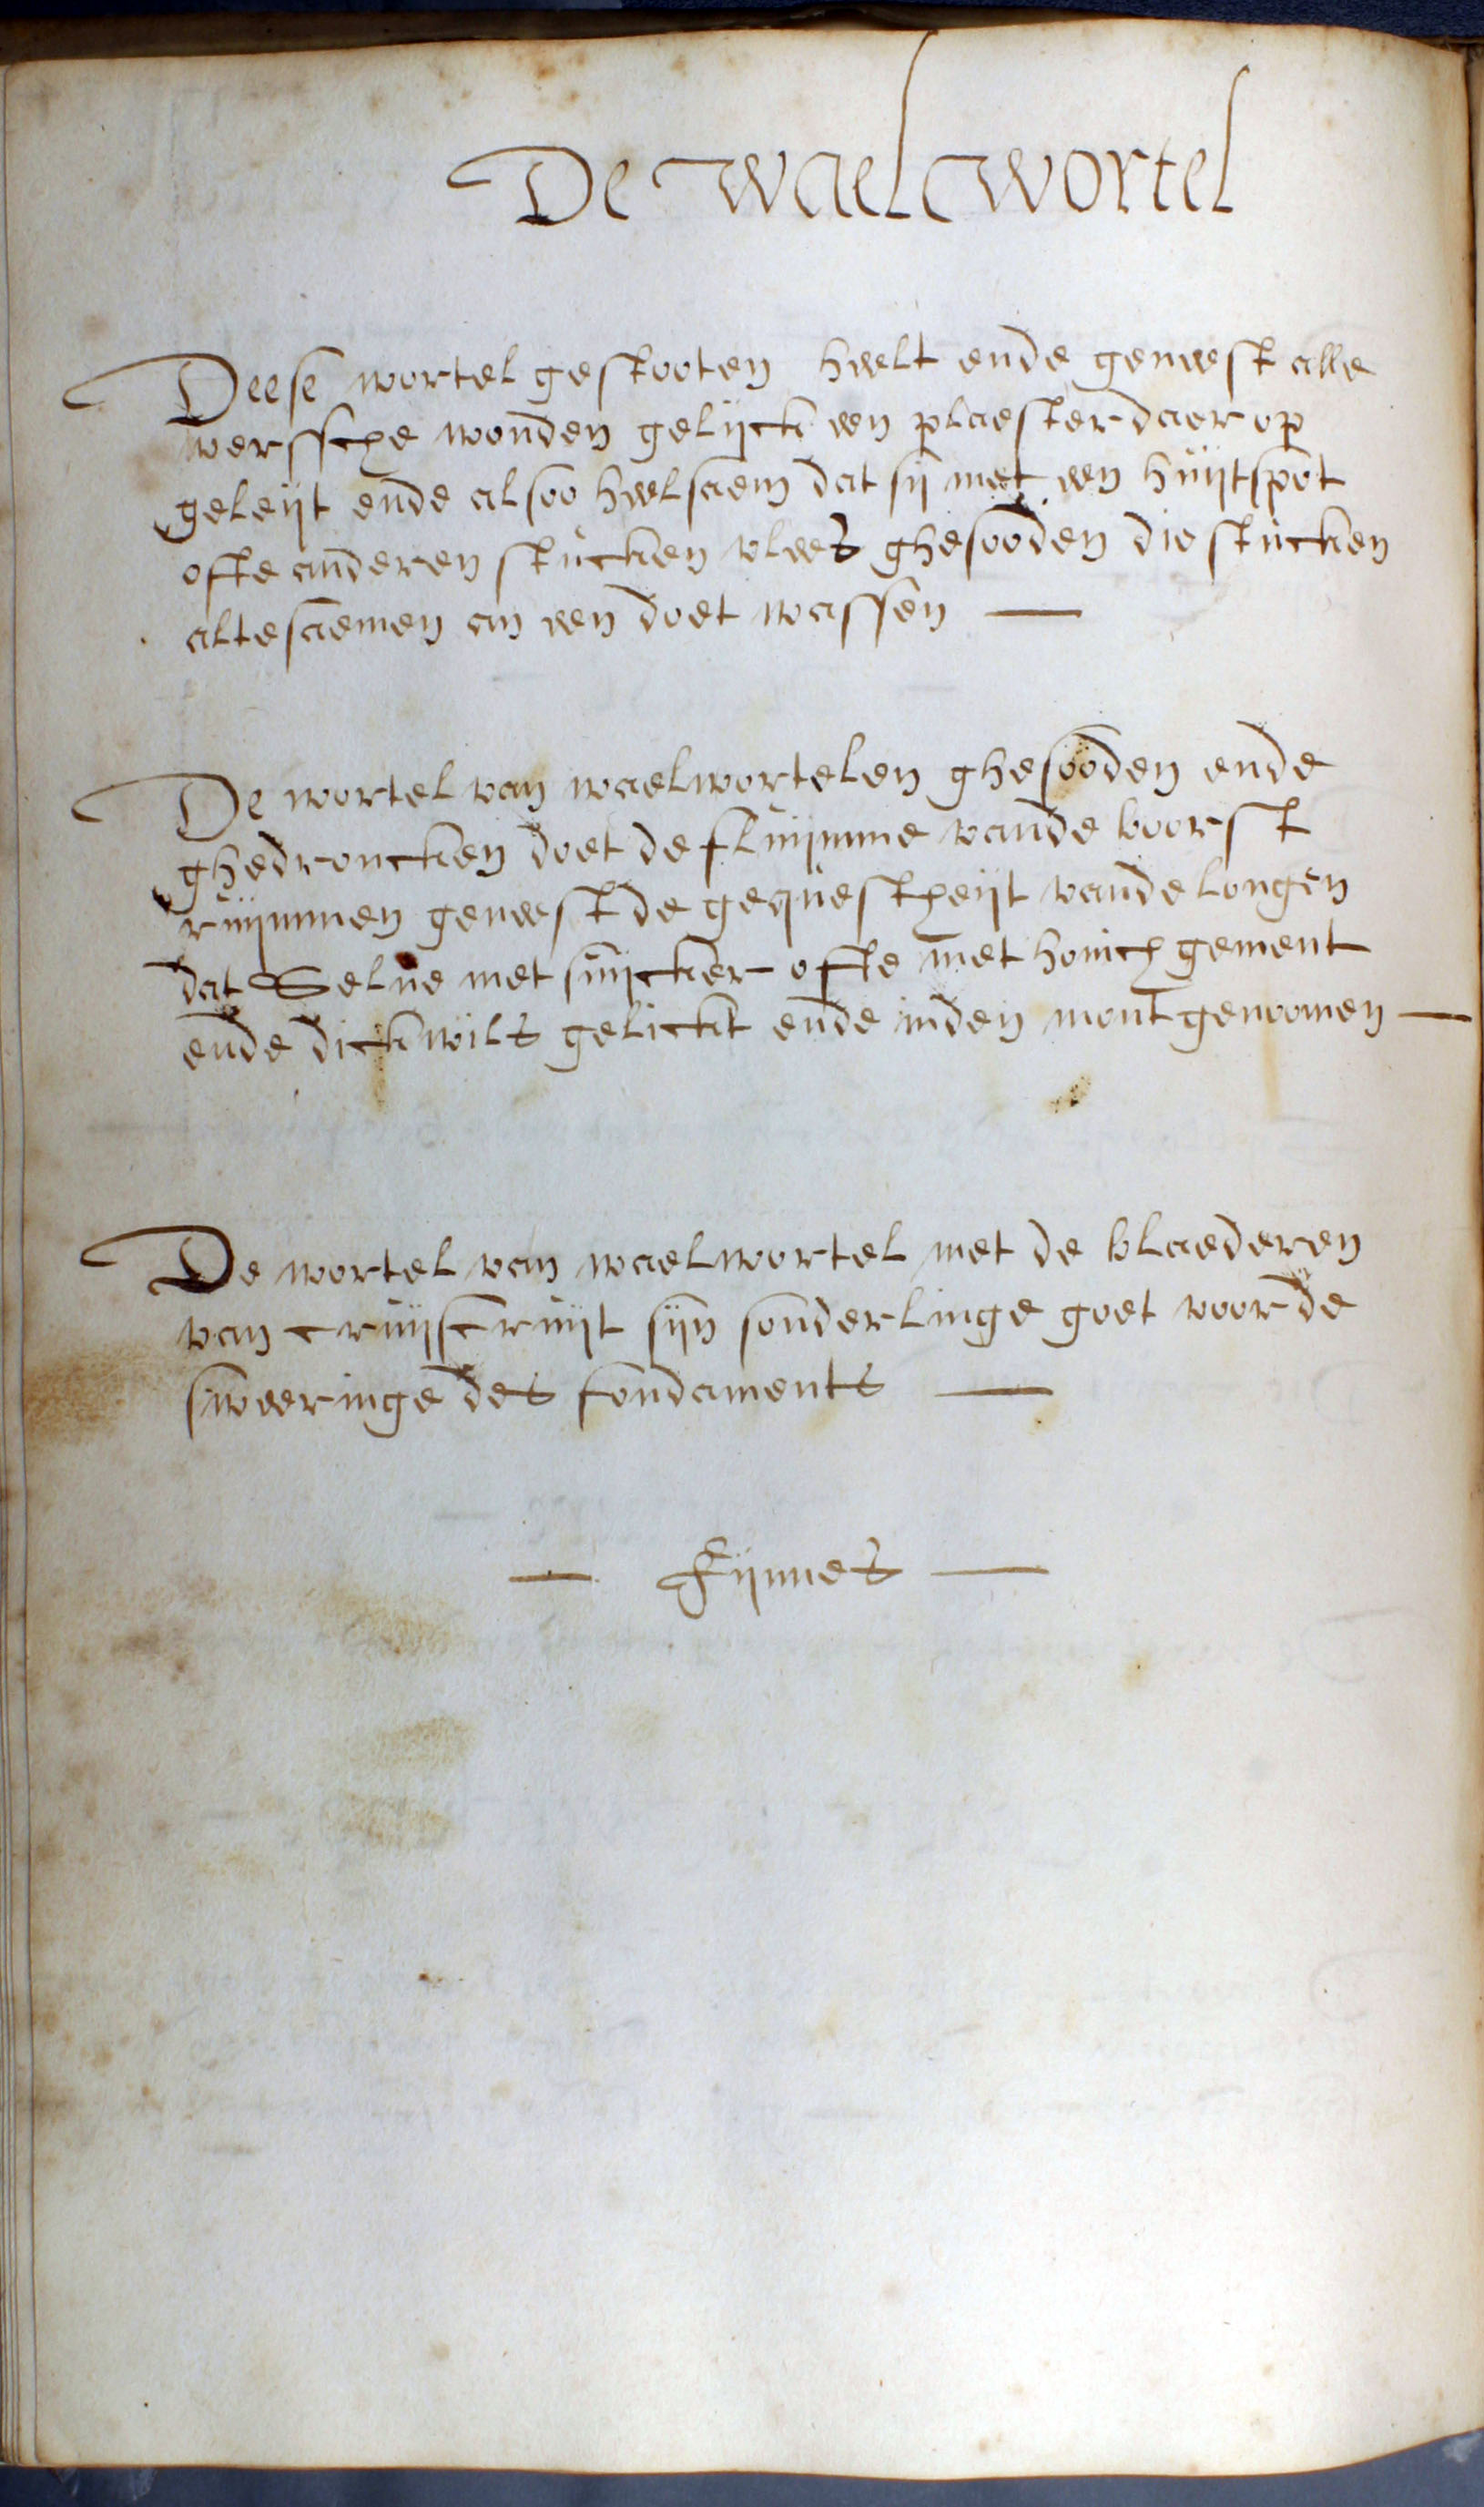 De waelwortel
Deese wortel gestooten heelt ende geneest alle
versssche wonden gelijck een plaester daer op
geleijt ende alsoo heelsaem dat sij met een huijtspot
ofte anderen stucken vlees ghesooden die stucken
altesaemen an een doet wassen —
De wortel van waelwortelen ghesooden ende
ghedroncken doet de fluijmme vande boorst
ruijmmen geneest de gequestheijt vande longen
dat Selve met suijcker ofte met honich gement
ende dickwils gelickt ende inden mont genoomen —
De wortel van waelwortel met de blaederen
van cruijscruijt sijn sonderlinge goet voor de
sweeringe des fondaments —
— Fijnnes —